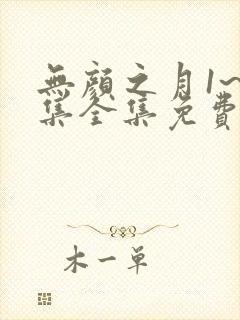 無顏之月1~
集全集免費
木一单